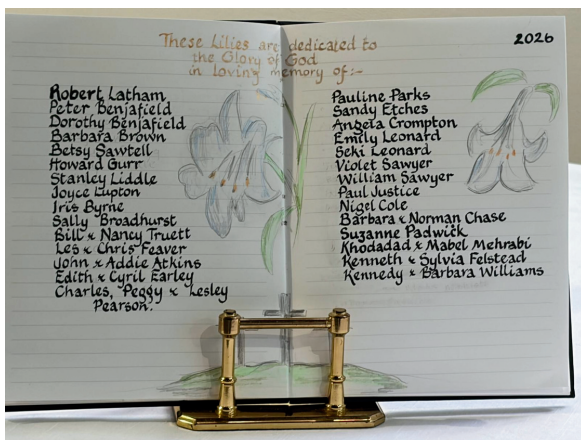 These Lilies are dedicated to
the Glory of God
in loving memory of:-
Robert Latham
Peter Benjafield
Dorothy Benjafield
Barbara Brown
Betsy Sawtell
Howard Gurr
Stanley Liddle
Joyce Lupton
Iris Byrne
Sally Broadhurst
Bill & Nancy Truett
Les & Chris Feaver
John & Addie Atkins
Edith & Cyril Earley
Charles, Peggy & Lesley
Pearson.
2026
Pauline Parks
Sandy Etches
Angela Crompton
Emily Leonard
Seki Leonard
Violet Sawyer
William Sawyer
Paul Justice
Nigel Cole
Barbara & Norman Chase
Suzanne Padwick
Khodadad & Mabel Mehrabi
Kenneth & Sylvia Felstead
Kennedy & Barbara Williams